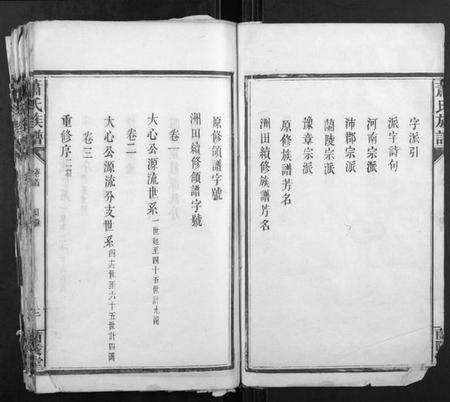 字派引
派字詩句
河南宗派
沛郡宗派
蘭陵宗派
豫章宗派
原修族譜芳名
洲田續修族譜芳名
原修領譜字號
洲田續修領譜字號
卷一
大心公源流世系 一世起至四十五世計九圖
卷二
大心公源流分支世系 四十六世至六十五世計四圖
卷三
重修序
蕭氏族譜